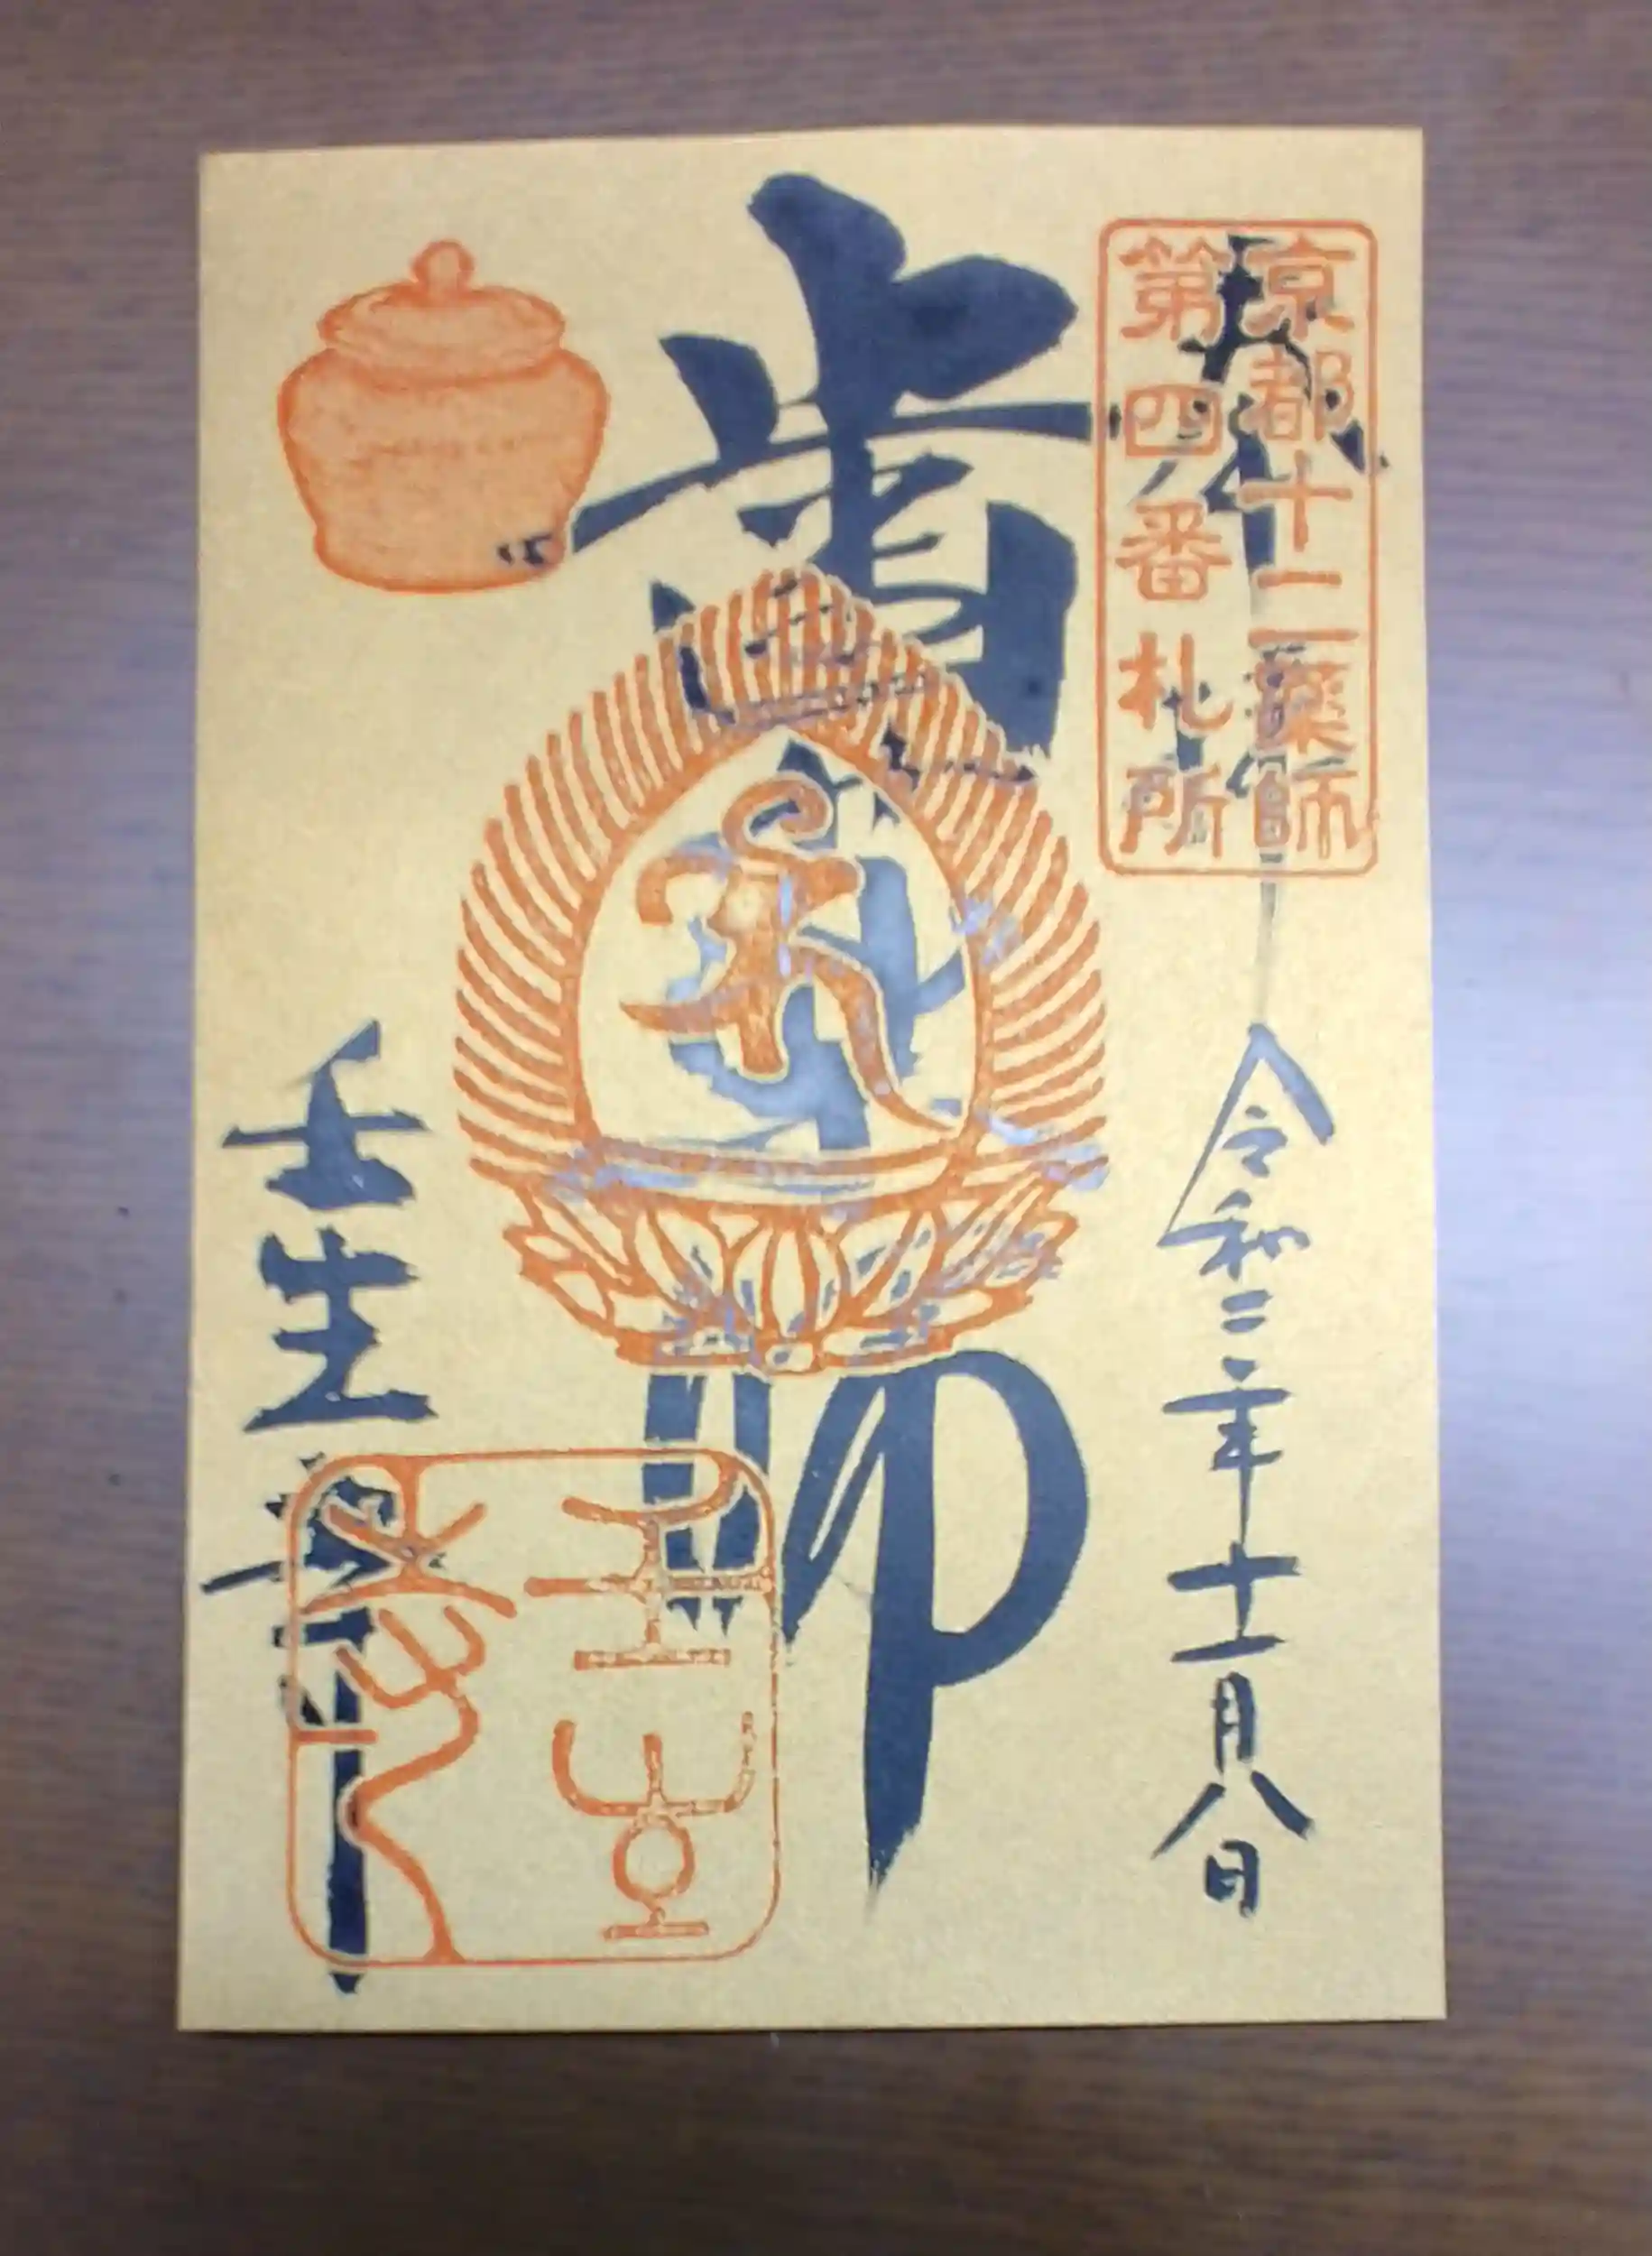 奉拝
京都十二薬師
第四番札所
令和二年十一月八日
歯薬師
壬生寺